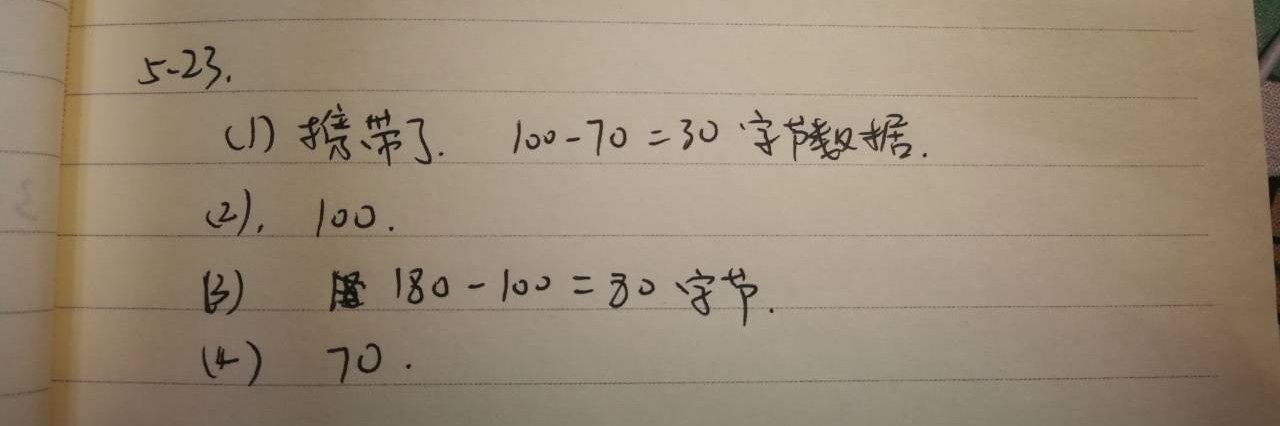 5-23.
(1) 携带了. 100-70=30 字节数据.
(2), 100.
(3) 180-100=80 字节.
(4) 70.